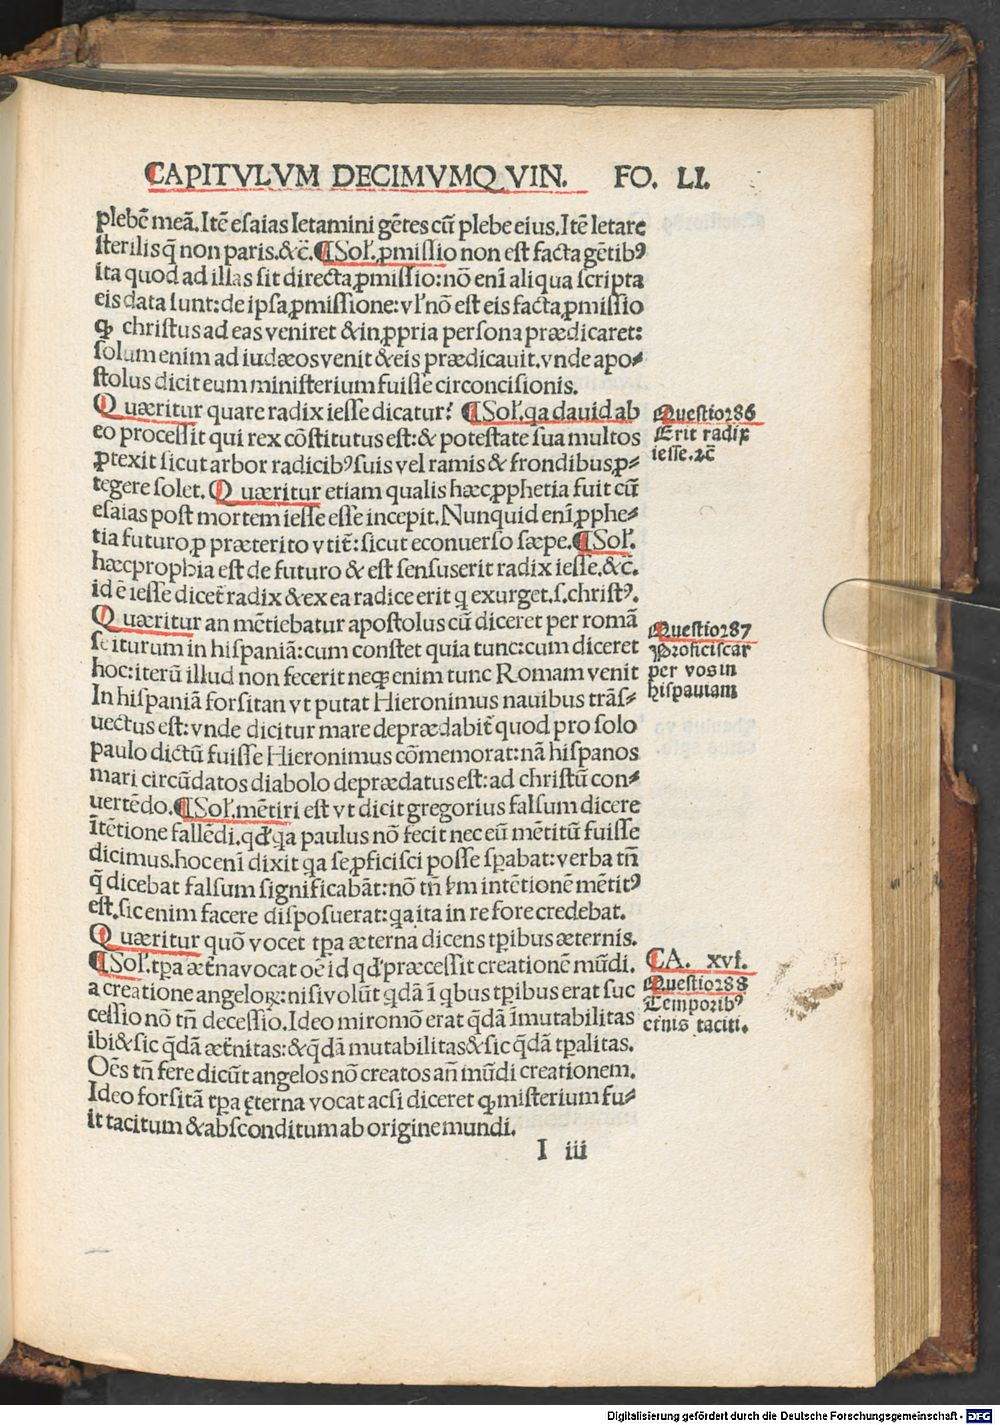 CAPITVLVM DECIMVMQVIN. FO. LI.
plebē meā. Itē esaias letamini gētes cū plebe eius. Itē letare
sterilis q̄ non paris. &c̄. ¶Sol'. ꝓmissio non est facta gētibꝰ
ita quod ad illas sit directa ꝓmissio: nō enī aliqua scripta
eis data sunt: de ipsa ꝓmissione: vl' nō est eis facta ꝓmissio
ꝙ christus ad eas veniret & in ꝓpria persona prædicaret:
solum enim ad iudæos venit & eis prædicauit. vnde apo⸗
stolus dicit eum ministerium fuisse circoncisionis.
Quæritur quare radix iesse dicatur? ¶Sol'. qa dauid ab
eo processit qui rex cōstitutus est: & potestate sua multos
ꝓtexit sicut arbor radicibꝰ suis vel ramis & frondibus ꝓ⸗
tegere solet. Quæritur etiam qualis hæc ꝓphetia fuit cū
esaias post mortem iesse esse incepit. Nunquid enī ꝓphe⸗
tia futuro ꝓ præterito vtit̄: sicut econuerso sæpe. ¶Sol'.
hæc prophīa est de futuro & est sensus erit radix iesse. &c̄.
id ē iesse dicet̄ radix & ex ea radice erit q exurget. s. christꝰ.
Quæritur an mētiebatur apostolus cū diceret per romā
se iturum in hispaniā: cum constet quia tunc: cum diceret
hoc: iterū illud non fecerit neqꝫ enim tunc Romam venit
In hispaniā forsitan vt putat Hieronimus nauibus trās⸗
uectus est: vnde dicitur mare deprædabit̄ quod pro solo
paulo dictū fuisse Hieronimus cōmemorat: nā hispanos
mari circūdatos diabolo deprædatus est: ad christū con⸗
uertēdo. ¶Sol'. mētiri est vt dicit gregorius falsum dicere
ītētione fallēdi. qd' qa paulus nō fecit nec eū mētitū fuisse
dicimus. hoc enī dixit qa se ꝓficisci posse sꝑabat: verba tn̄
q̄ dicebat falsum significabāt: nō tn̄ ẜm intētionē mētitꝰ
est. sic enim facere disposuerat: qa ita in re fore credebat.
Quæritur quō vocet tꝑa æterna dicens tꝑibus æternis.
¶Sol'. tꝑa æt̄na vocat oē id qd' præcessit creationē mūdi.
a creatione angeloꝝ: nisi volūt qdā ī qbus tꝑibus erat suc
cessio nō tn̄ decessio. Ideo miro mō erat q̄dā īmutabilitas
ibi & sic q̄dā æt̄nitas: & q̄dā mutabilitas & sic q̄dā tꝑalitas.
Oēs tn̄ fere dicūt angelos nō creatos añ mūdi creationem.
Ideo forsitā tꝑa ęterna vocat acsi diceret ꝙ misterium fu⸗
it tacitum & absconditum ab origine mundi.
I iii
Questio286
Erit radix
iesse. ⁊c̄
Questio287
Proficiscar
per vos in
hispaniam
CA. xvi.
Questio288
Temporibꝰ
et̄nis taciti.
Digitalisierung gefördert durch die Deutsche Forschungsgemeinschaft - DFG